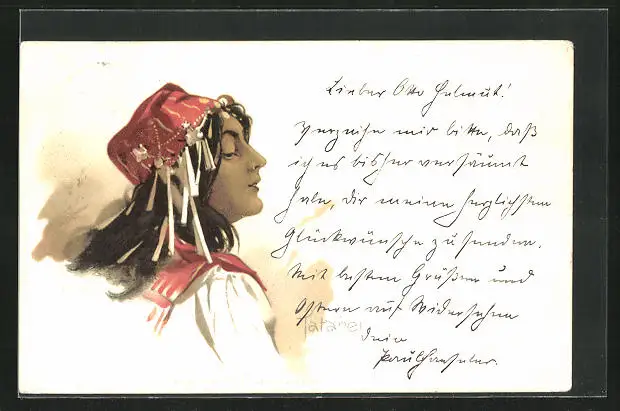 Lieber Otto Helmut!
Verzeihe mir bitte, daß
ich es bisher versäumt
habe, dir meine herzlichsten
Glückwünsche zu senden.
Mit besten Grüßen und
Ostern auf Widersehen
dein
Paul